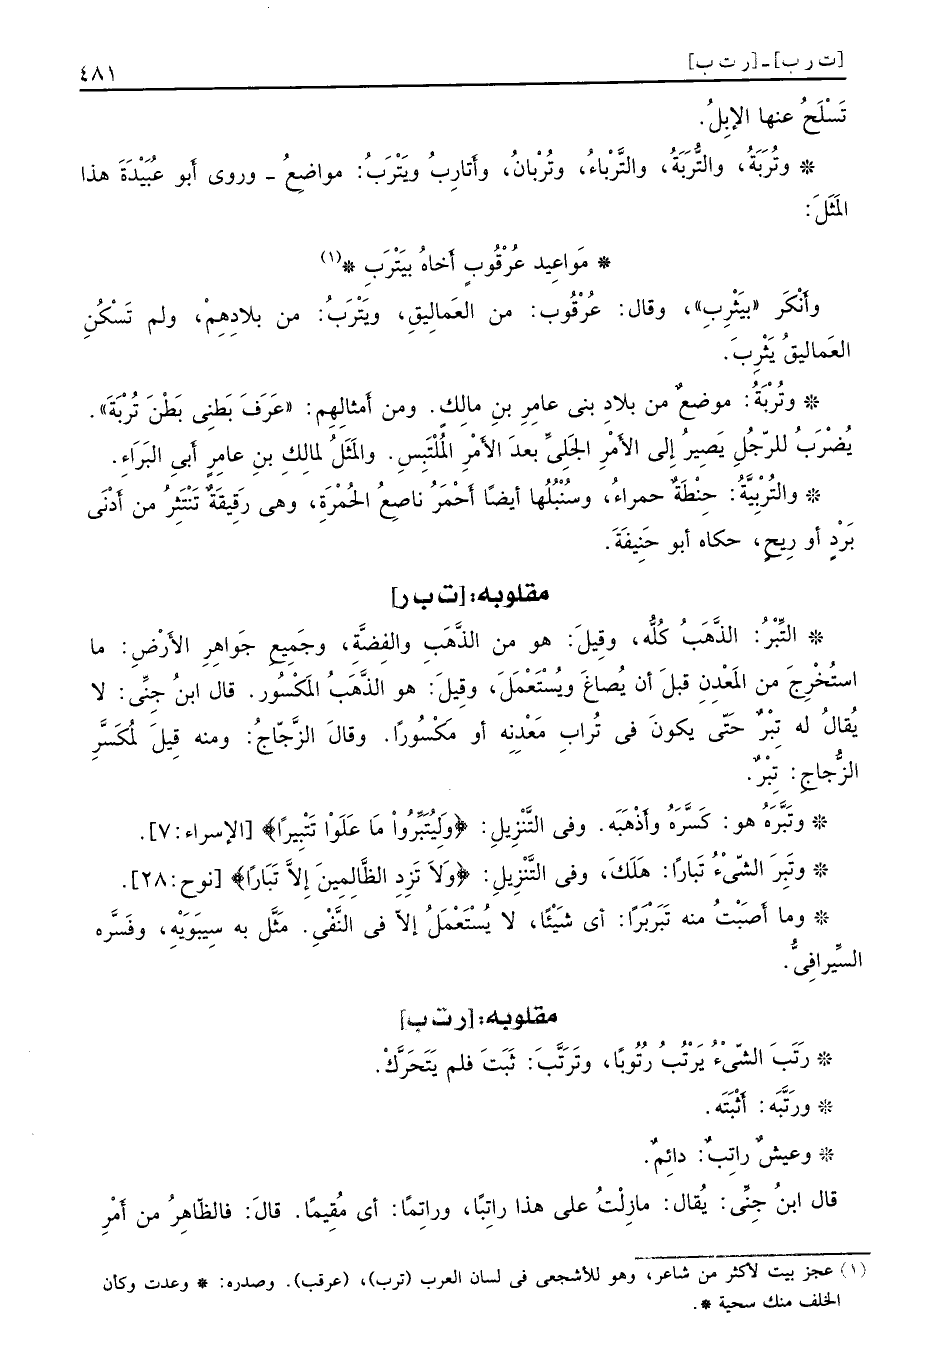 [ت ر ب] ـ [ر ت ب]
٤٨١
تَسْلَحُ عنها الإبِلُ.
* وتُرَبَةُ، والتُّرَبَةُ، والتَّرْباء، وتُرْبانُ، وأتارِبُ ويَتْرَبُ: مواضعُ ـ وروى أبو عبَيْدَةَ هذا
المَثَلَ:
* مَواعِيد عرْقُوبٍ أخاهُ بيَتْرَبِ *(١)
وأنْكَرَ «بيَثْرِبِ»، وقال: عرْقُوب: من العَماليقِ، ويَتْرَبُ: من بلادِهِمْ، ولم تَسْكُنِ
العَماليقُ يَثْرِبَ.
* وتُرْبَةُ: موضعٌ من بلادِ بنى عامرِ بنِ مالكٍ. ومن أمثالِهِم: «عَرَفَ بَطْنِى بَطْنَ تُرْبَةَ».
يُضْرَبُ للرّجُلِ يَصِيرُ إلى الأمْرِ الجَلىِّ بعدَ الأمْرِ المُلْتَبِسِ. والمَثَلُ لمالِكِ بنِ عامرٍ أبى البَرَاء.
* والتُّرْبِيَّةُ: حِنْطَةٌ حمراءُ، وسُنْبُلُها أيضًا أحْمَرُ ناصعُ الحُمْرَةِ، وهى رَقِيقَةٌ تَنْتَثِرُ من أدْنَى
بَرْدٍ أو رِيحٍ، حكاه أبو حَنِيفَةَ.
مقلوبه: [ت ب ر]
* التِّبْرُ: الذَّهَبُ كُلُّه، وقيلَ: هو من الذَّهَبِ والفِضَّةِ، وجَمِيعِ جَواهِرِ الأرْضِ: ما
استُخْرِجَ من المَعْدِنِ قبلَ أن يُصاغَ ويُسْتَعْمَلَ، وقيلَ: هو الذَّهَبُ المَكْسُور. قال ابنُ جنِّى: لا
يُقالُ له تِبْرٌ حَتّى يكونَ فى تُرابِ مَعْدنِه أو مَكْسُورًا. وقالَ الزَّجّاجُ: ومنه قِيلَ لمُكَسَّرِ
الزُّجاجِ: تِبْرٌ.
* وتَبَّرَهُ هو: كَسَّرَهُ وأذْهَبَه. وفى التَّنْزِيل: ﴿وَلِيُتَبِّرُواْ مَا عَلَوْا تَتْبِيرًا﴾ [الإسراء: ٧].
* وتَبِرَ الشّىْءُ تَبارًا: هَلَكَ، وفى التَّنْزِيل: ﴿وَلاَ تَزِدِ الظَّالِمِينَ إلاَّ تَبَارًا﴾ [نوح: ٢٨].
* وما أصَبْتُ منه تَبَرْبَرًا: أى شَيْئًا، لا يُسْتَعْمَلُ إلاّ فى النَّفْىِ. مَثَّل به سِيبَوَيْهِ، وفَسَّره
السِّيرافِىُّ.
مقلوبه: [ر ت ب]
* رَتَبَ الشّىْءُ يَرْتُبُ رُتُوبًا، وتَرَتَّبَ: ثَبَتَ فلم يَتَحَرَّكْ.
* ورَتَّبَه: أثْبَتَه.
* وعيشٌ راتِبٌ: دائِمٌ.
قال ابنُ جنِّى: يُقال: مازِلْتُ على هذا راتِبًا، وراتِمًا: أى مُقِيمًا. قالَ: فالظّاهِرُ من أمْرِ
(١) عجز بيت لأكثر من شاعر، وهو للأشجعى فى لسان العرب (ترب)، (عرقب). وصدره: * وعدت وكان
الخلف منك سجية *.